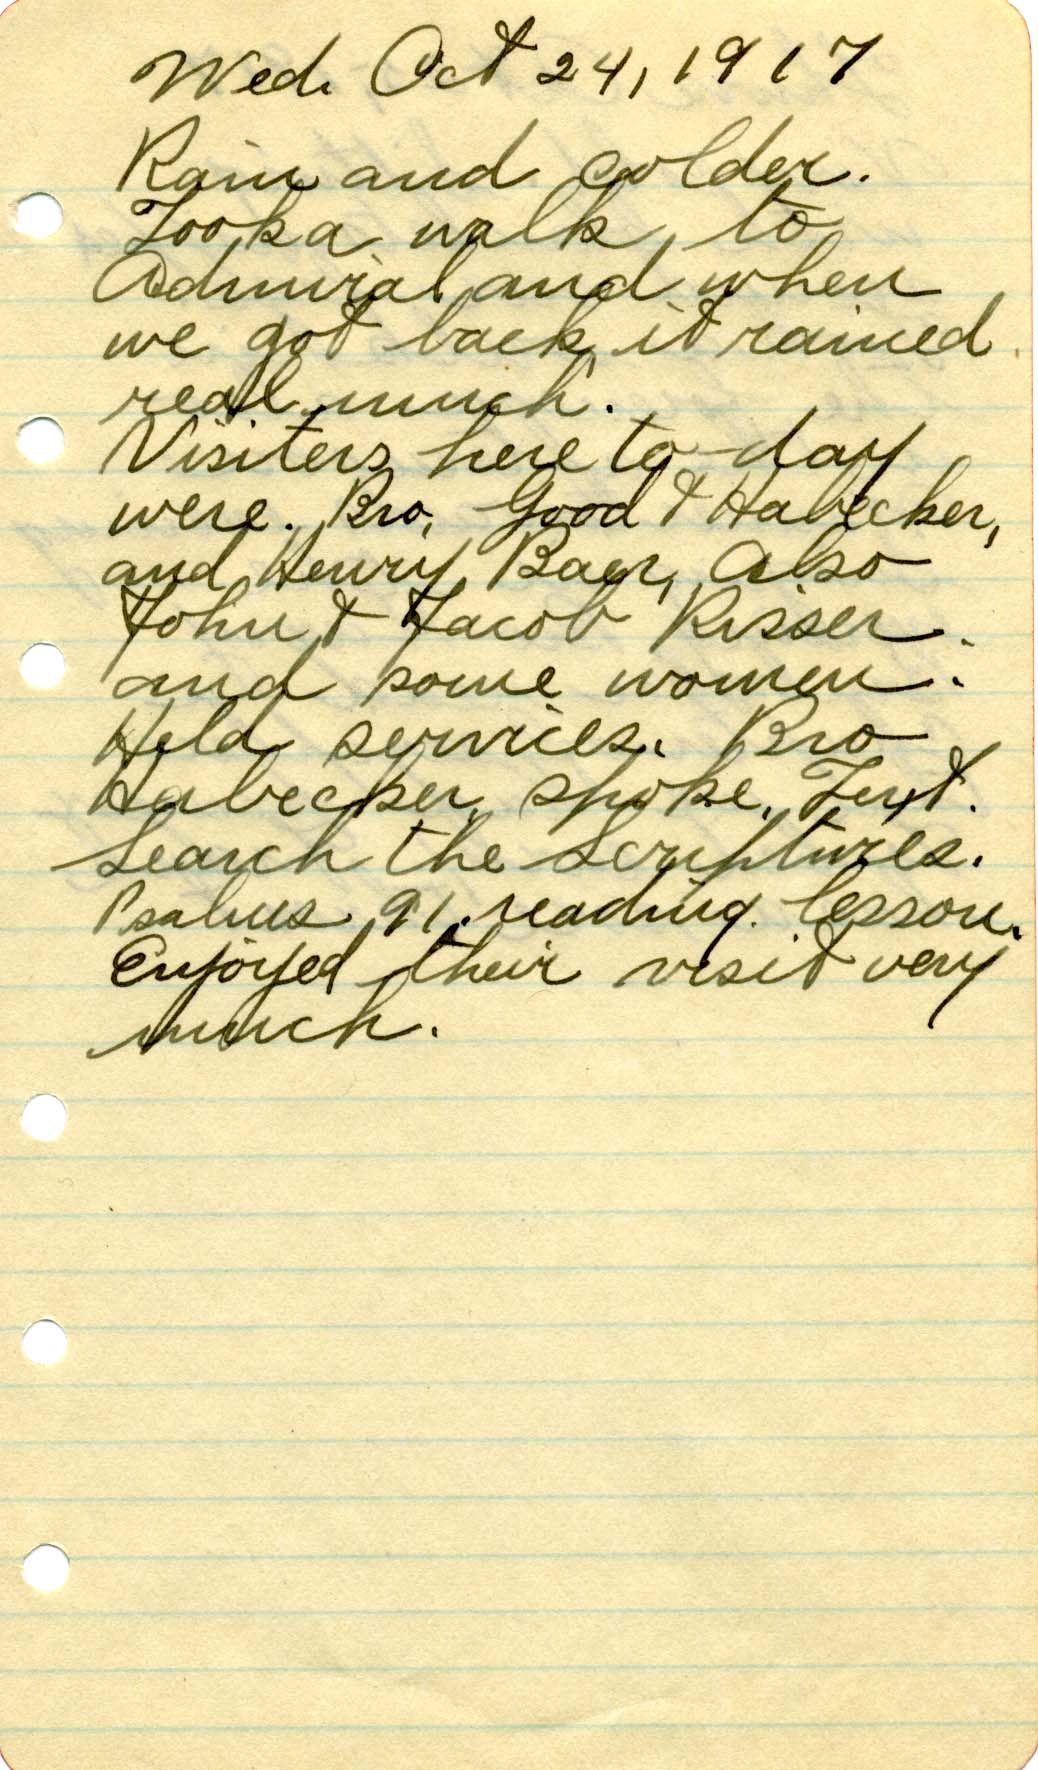 Wed. Oct 24, 1917
Rain and colder.
Took a walk to
Admiral and when
we got back it rained
real much.
Visiters here to-day
were. Bro. Good & Habecker,
and Henry Baer, Also
John & Jacob Risser.
and some women.
Held services. Bro
Habecker spoke. Text.
Search the Scriptures.
Psalms 91. reading lesson.
Enjoyed their visit very
much.